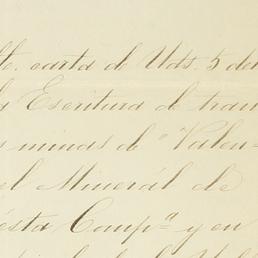 carta de Uds. 5 del
Escritura de tran
minas de "Valen-
el Mineral de
ésta Compª y en